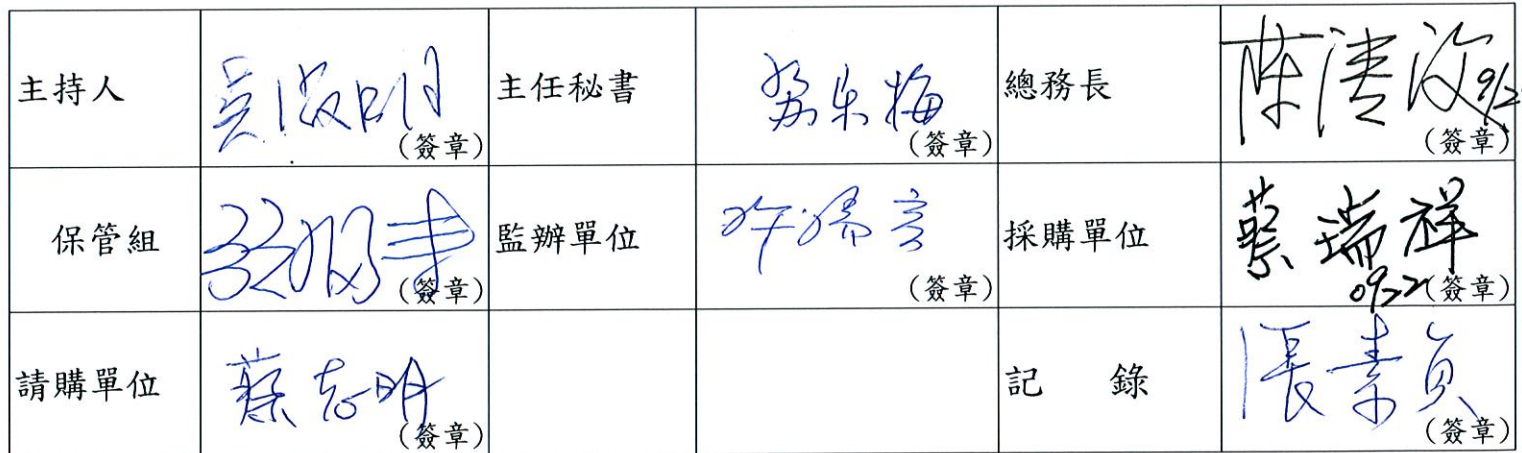 主持人 吳淑明 (簽章) 主任秘書 (簽章) 總務長 陳清汶 9/2 (簽章)
保管組 (簽章) 監辦單位 (簽章) 採購單位 蔡瑞祥 09/22 (簽章)
請購單位 蔡志明 (簽章) 記 錄 張素貞 (簽章)